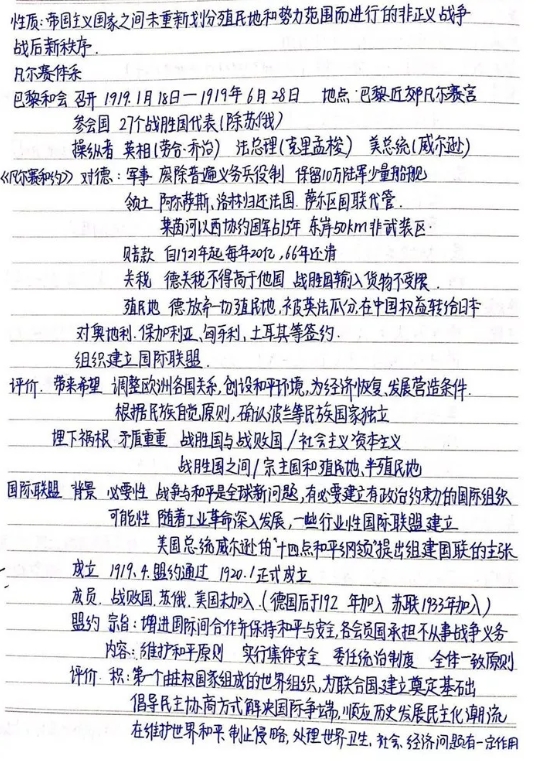 性质:帝国主义国家之间为重新划分殖民地和势力范围而进行的非正义战争
战后新秩序.
凡尔赛体系
巴黎和会 召开 1919.1月18日—1919年6月28日 地点:巴黎近郊凡尔赛宫
参会国 27个战胜国代表(除苏俄)
操纵者 英相(劳合·乔治) 法总理(克里孟梭) 美总统(威尔逊)
《凡尔赛和约》 对德:军事 废除普遍义务兵役制 保留10万陆军少量船舰
领土 阿尔萨斯、洛林归还法国. 萨尔区国联代管.
莱茵河以西协约国军占15年 东岸50km非武装区.
赔款 自1921年起每年20亿,66年还清
关税 德关税不得高于他国 战胜国输入货物不受限.
殖民地 德放弃一切殖民地,被英法瓜分,在中国权益转给日本
对奥地利.保加利亚、匈牙利,土耳其等签约.
组织建立国际联盟.
评价. 带来希望 调整欧洲各国关系,创设和平环境,为经济恢复、发展营造条件.
根据民族自觉原则,确认波兰等民族国家独立
埋下祸根 矛盾重重 战胜国与战败国/社会主义资本主义
战胜国之间/宗主国和殖民地、半殖民地
国际联盟 背景 必要性 战争与和平是全球新问题,有必要建立有政治约束力的国际组织
可能性 随着工业革命深入发展,一些行业性国际联盟建立
美国总统威尔逊的"十四点和平纲领"提出组建国联的主张
成立 1919.4.盟约通过 1920.1正式成立
成员. 战败国.苏俄.美国未加入.(德国后于192 年加入 苏联1933年加入)
盟约 宗旨:增进国际间合作并保持和平与安全,各会员国承担不从事战争义务
内容:维护和平原则 实行集体安全 委任统治制度 全体一致原则
评价. 积:第一个由主权国家组成的世界组织,为联合国建立奠定基础
倡导民主协商方式解决国际争端,顺应历史发展民主化潮流
在维护世界和平、制止侵略,处理世界卫生.社会、经济问题有一定作用